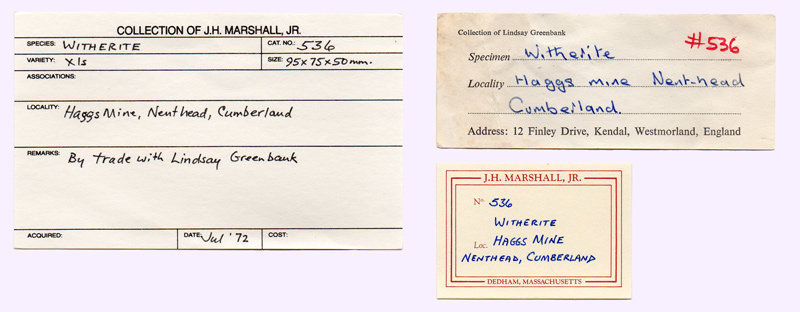 COLLECTION OF J.H. MARSHALL, JR.
SPECIES: WITHERITE CAT. NO.: 536
VARIETY: Xls SIZE: 95x75x50mm.
ASSOCIATIONS:
LOCALITY: Haggs Mine, Nenthead, Cumberland
REMARKS: By trade with Lindsay Greenbank
ACQUIRED: DATE: Jul '72 COST:
Collection of Lindsay Greenbank
#536
Specimen Witherite
Locality Haggs mine Nent-head
Cumberland.
Address: 12 Finley Drive, Kendal, Westmorland, England
J.H. MARSHALL, JR.
No. 536
WITHERITE
Loc. HAGGS MINE
NENTHEAD, CUMBERLAND
DEDHAM, MASSACHUSETTS